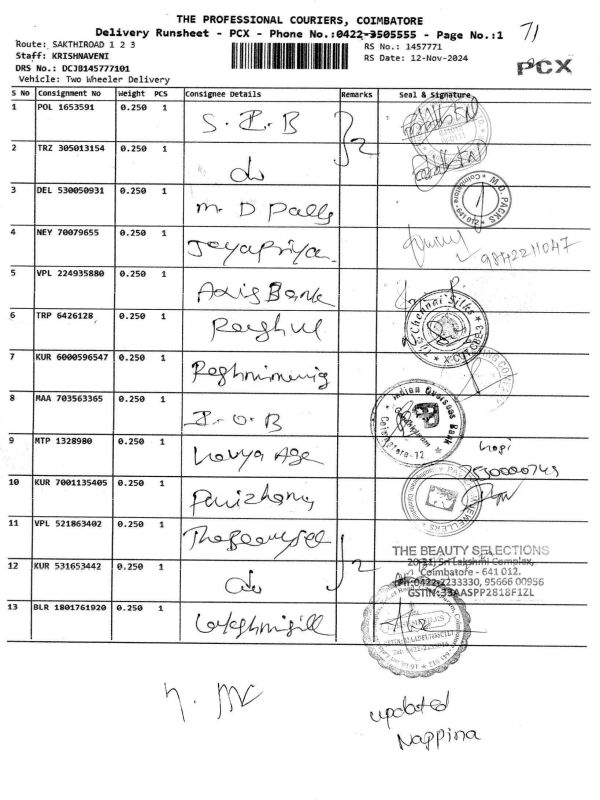 THE PROFESSIONAL COURIERS, COIMBATORE
Delivery Runsheet - PCX - Phone No.:0422-3505555 - Page No.:1
71
Route: SAKTHIROAD 1 2 3
RS No.: 1457771
Staff: KRISHNAVENI
RS Date: 12-Nov-2024
DRS No.: DCJB145777101
PCX
Vehicle: Two Wheeler Delivery
S No Consignment No Weight PCS Consignee Details Remarks Seal & Signature
1 POL 1653591 0.250 1 S. I. B
2
2 TRZ 305013154 0.250 1 do
3 DEL 530050931 0.250 1 M. D
M.D. PACKS
Coimbatore
4 NEY 70079655 0.250 1 Jayapriya
9842211047
5 VPL 224935880 0.250 1 Axis Bank
6 TRP 6426128 0.250 1 Raghul
The Chennai Silks
7 KUR 6000596547 0.250 1
8 MAA 703563365 0.250 1 I. O. B
Indian Overseas Bank
Coimbatore-12
9 MTP 1328980 0.250 1
10 KUR 7001135405 0.250 1
JEWELLERS
11 VPL 521863402 0.250 1
2
THE BEAUTY SELECTIONS
20-21, Sri Lakshmi Complex,
Coimbatore - 641 012.
Ph:0422-2233330, 95666 00956
GSTIN:33AASPP2818F1ZL
12 KUR 531653442 0.250 1 do
13 BLR 1801761920 0.250 1
updated
Nappina